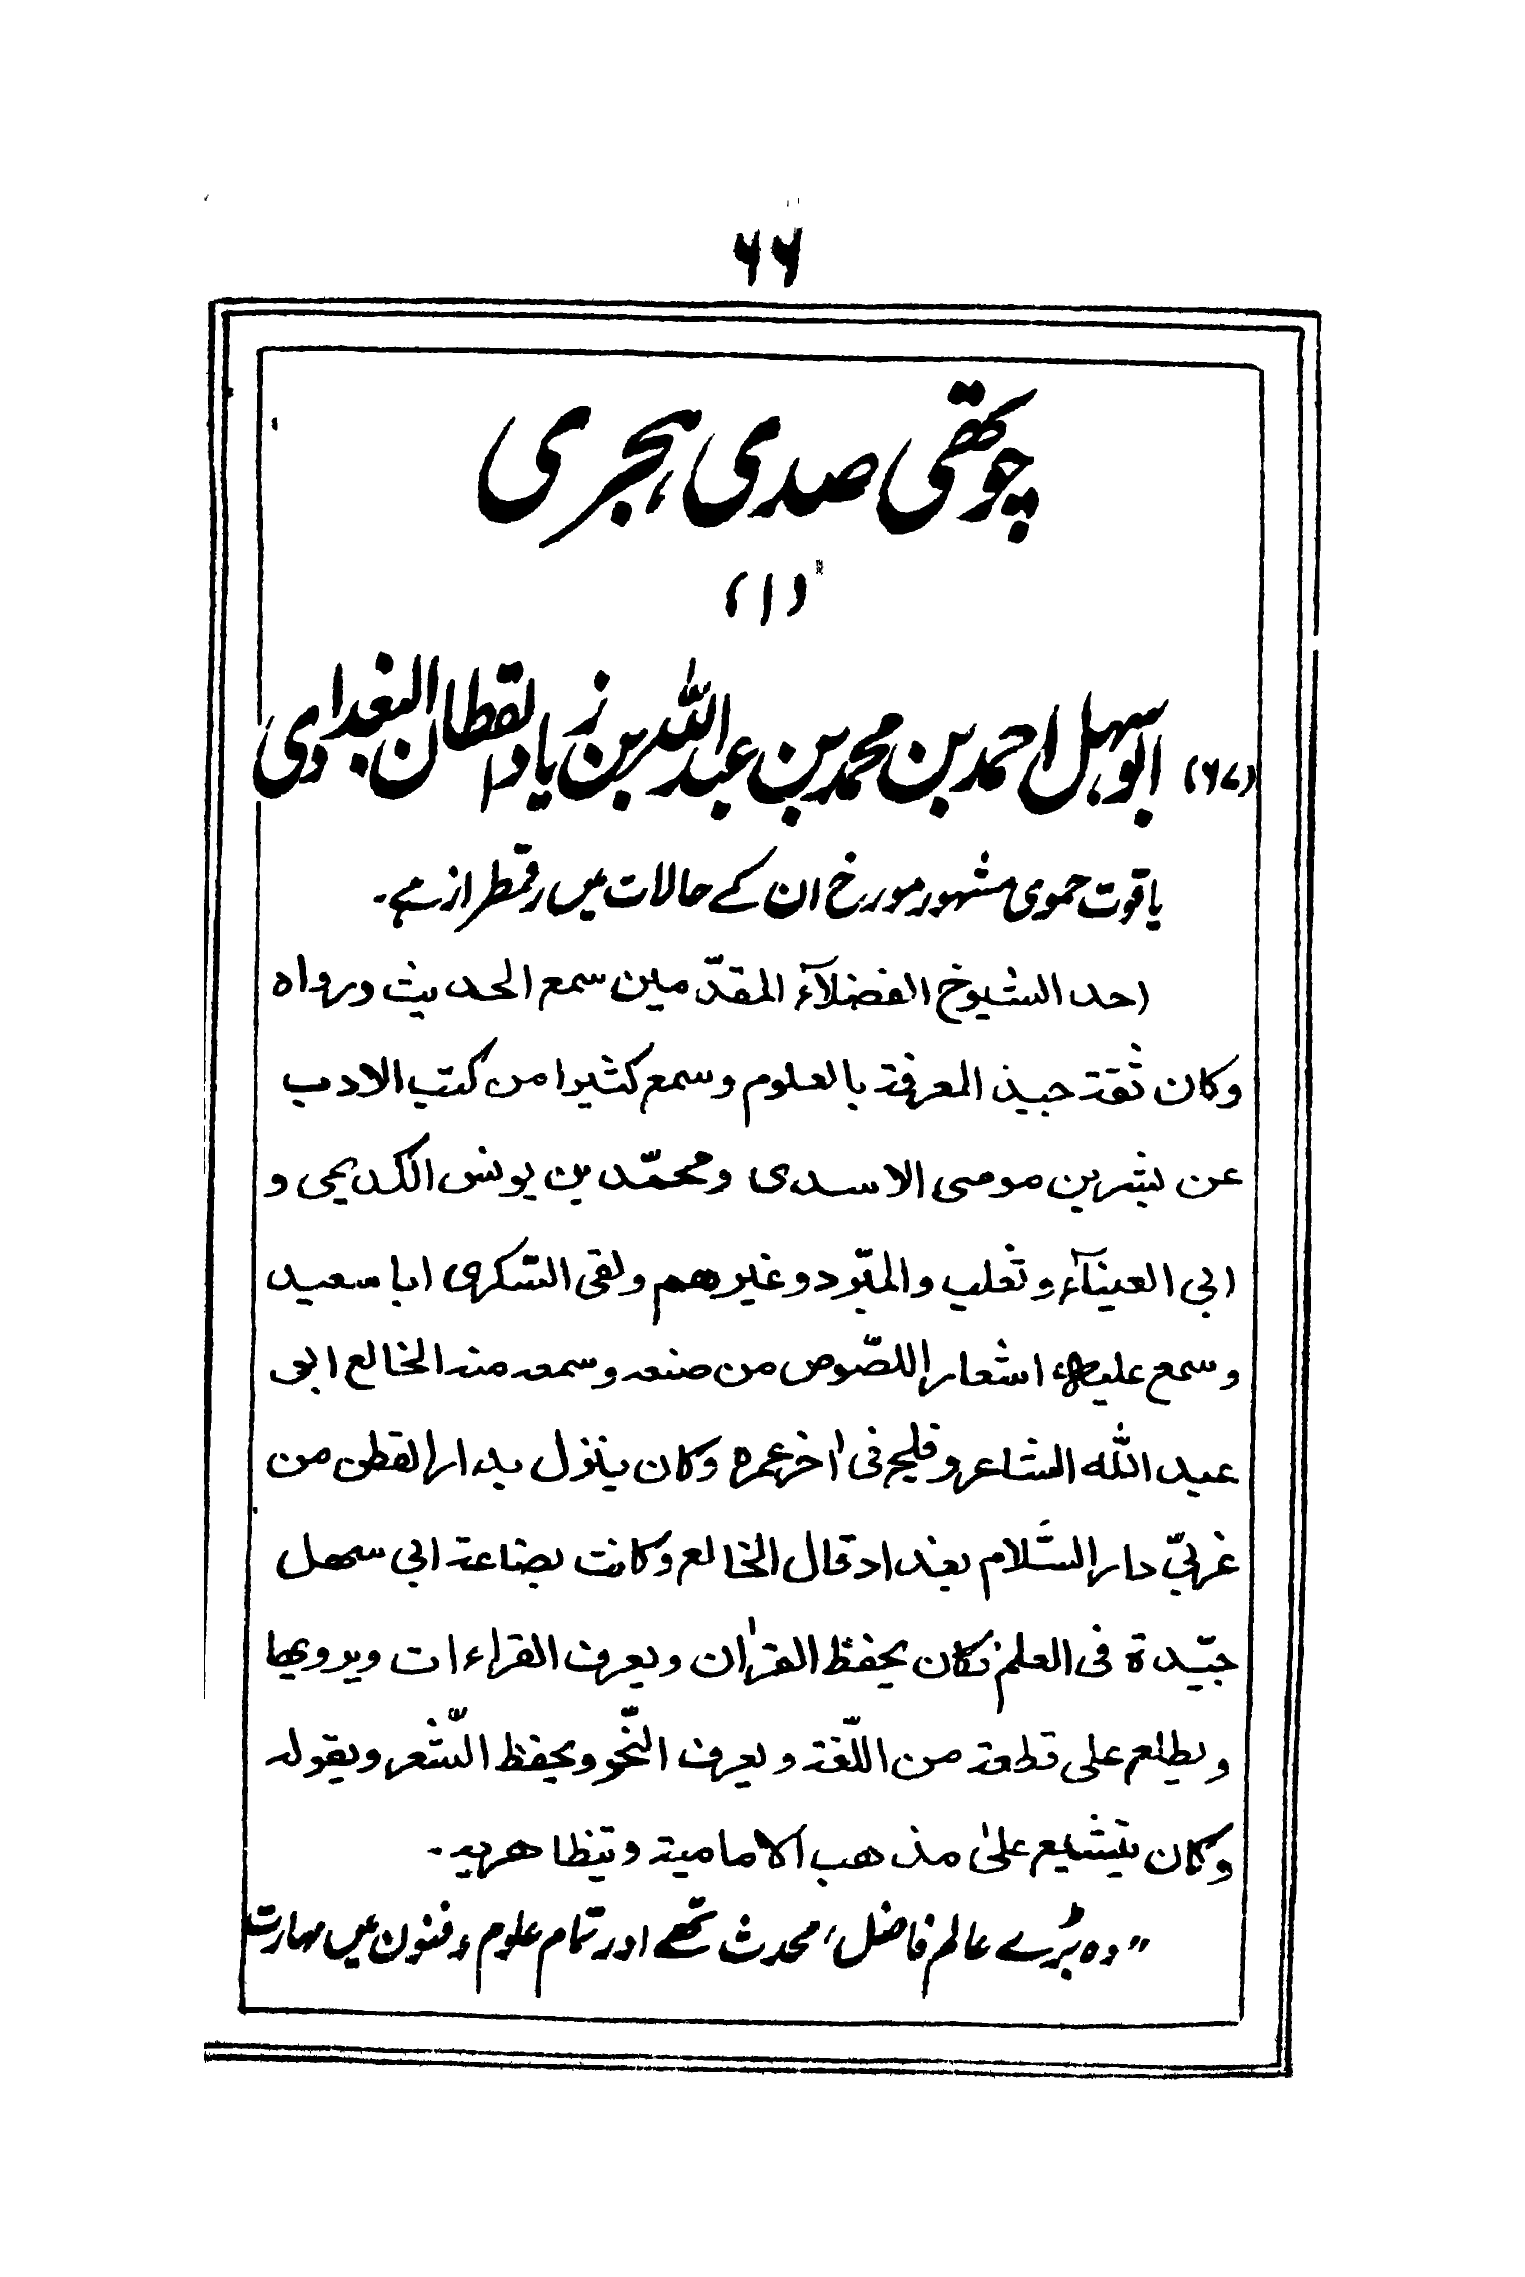 ۶۶
چوتھی صدی ہجری
(۱)
(۶۷) ابوسہل احمد بن محمد بن عبداللہ بن زیاد القطان البغدادی
یاقوت حموی مشہور مورخ ان کے حالات میں رقمطراز ہے۔
احد الشیوخ الفضلآء المقدّمین سمع الحدیث ورواہ
وکان ثقۃ جید المعرفۃ بالعلوم وسمع کثیرا من کتب الادب
عن بشر بن موسی الاسدی ومحمّد بن یونس الکدیمی و
ابی العینآء وثعلب والمبّرد وغیرھم ولقی السکری ابا سعید
وسمع علیہ اشعار اللصّوص من صنعہ وسمعہ منہ الخالع ابو
عبد اللّٰہ الشاعر وفلج فی اٰخر عمرہ وکان ینزل بدار القطن من
غربیّ دار السَّلام بغداد قال الخالع وکانت بضاعۃ ابی سھل
جیّدۃ فی العلم فکان یحفظ القراٰن ویعرف القراءات ویرویھا
ویطلع علی قطعۃ من اللّغۃ ویعرف النّحو ویحفظ الشّعر ویقولہ
وکان یتشیع علیٰ مذھب الامامیۃ ویتظاھر بہ۔
”وہ بڑے عالم فاضل، محدث تھے اور تمام علوم و فنون میں مہارت